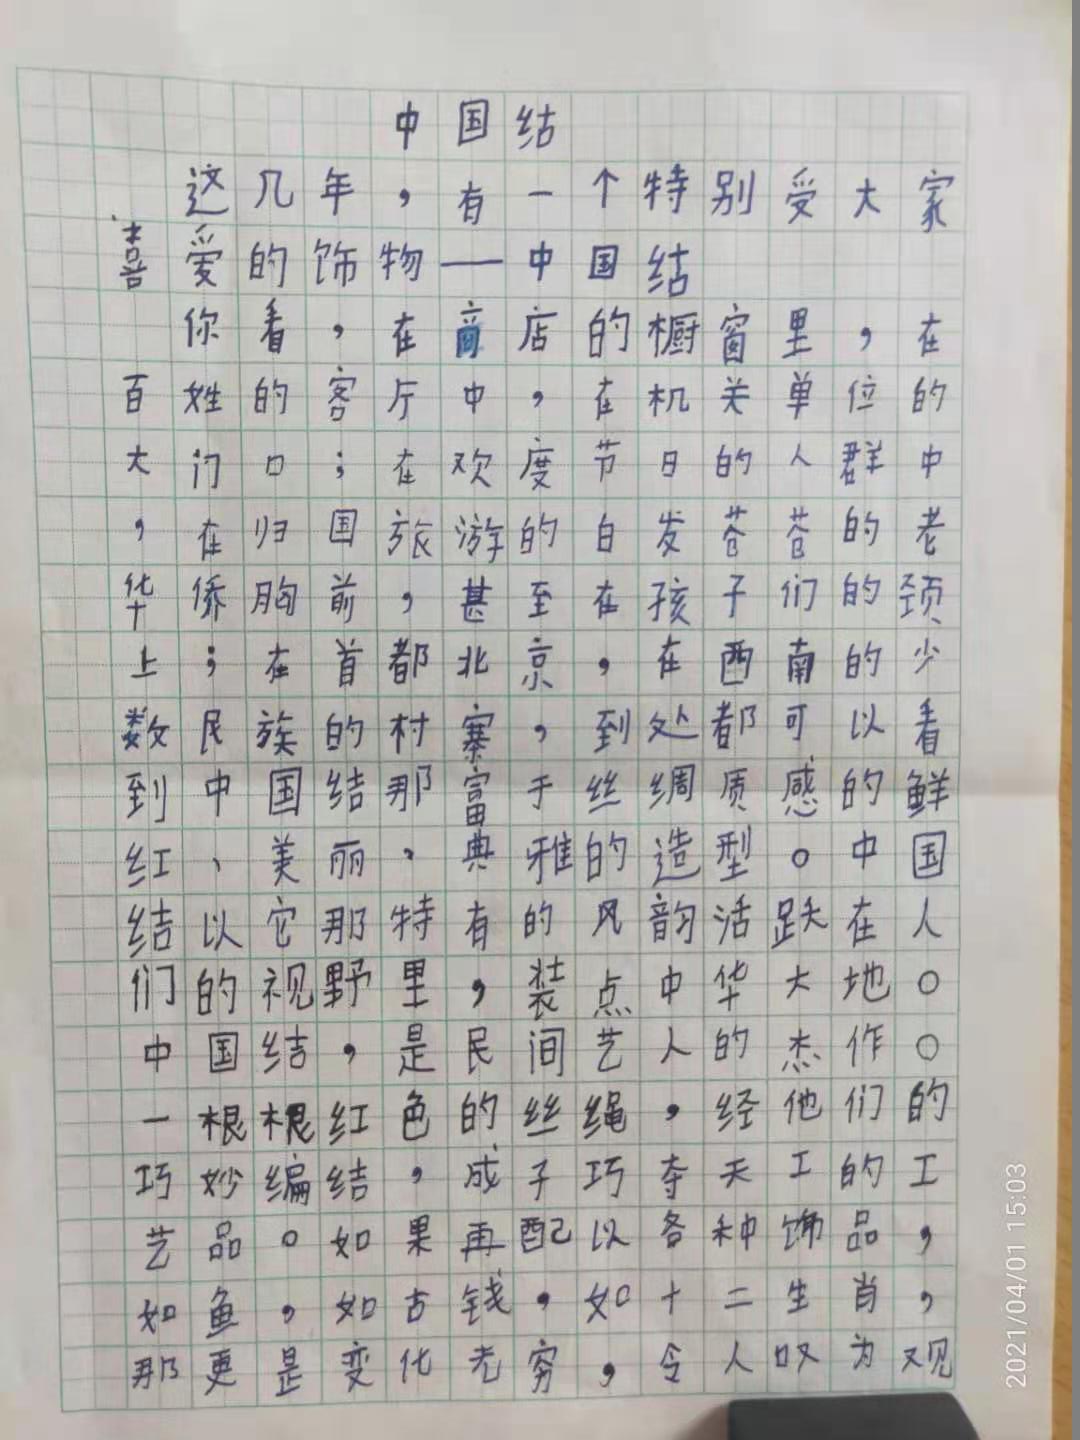 中国结
这几年，有一个特别受大家
喜爱的饰物——中国结
你看，在商店的橱窗里，在
百姓的客厅中，在机关单位的
大门口；在欢度节日的人群中
，在归国旅游的白发苍苍的老
华侨胸前，甚至在孩子们的颈
上；在首都北京，在西南的少
数民族的村寨，到处都可以看
到中国结那富于丝绸质感的鲜
红、美丽，典雅的造型。中国
结以它那特有的风韵活跃在人
们的视野里，装点中华大地。
中国结，是民间艺人的杰作。
一根根红色的丝绳，经他们的
巧妙编结，成子巧夺天工的工
艺品。如果再配以各种饰品，
如鱼，如古钱，如十二生肖，
那更是变化无穷，令人叹为观
2021/04/01 15:03